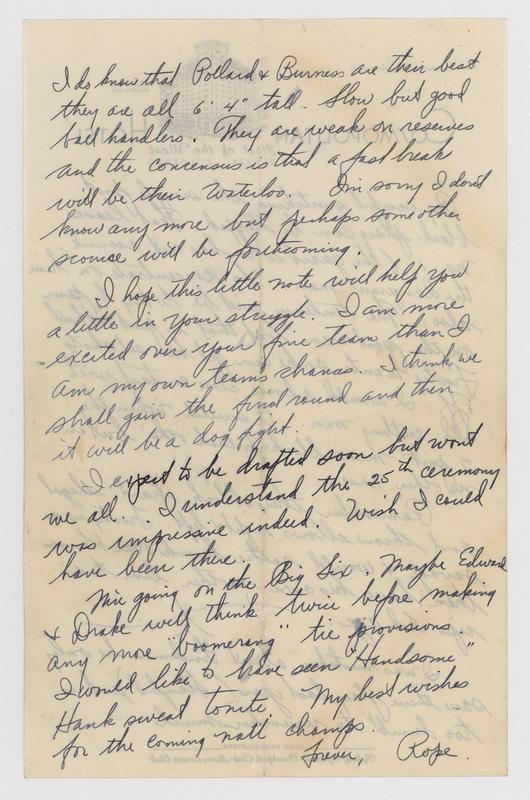 I do know that Pollard & Burness are their best
they are all 6' 4" tall. Slow but good
ball handlers. They are weak on reserves
and the concensus is that a fast break
will be their Waterloo. I'm sorry I don't
know any more but perhaps some other
scouse will be forthcoming.
I hope this little note will help you
a little in your struggle. I am more
excited over your fine team than I
am my own team's chances. I think we
shall gain the final round and then
it will be a dog fight.
I expect to be drafted soon but wont
we all. I understand the 25th ceremony
was impressive indeed. Wish I could
have been there.
Nice going on the Big Six. Maybe Edward
& Drake will think twice before making
any more "boomerang" tie provisions.
I would like to have seen "Handsome"
Hank sweat tonite. My best wishes
for the coming natl champs.
forever, Rope.